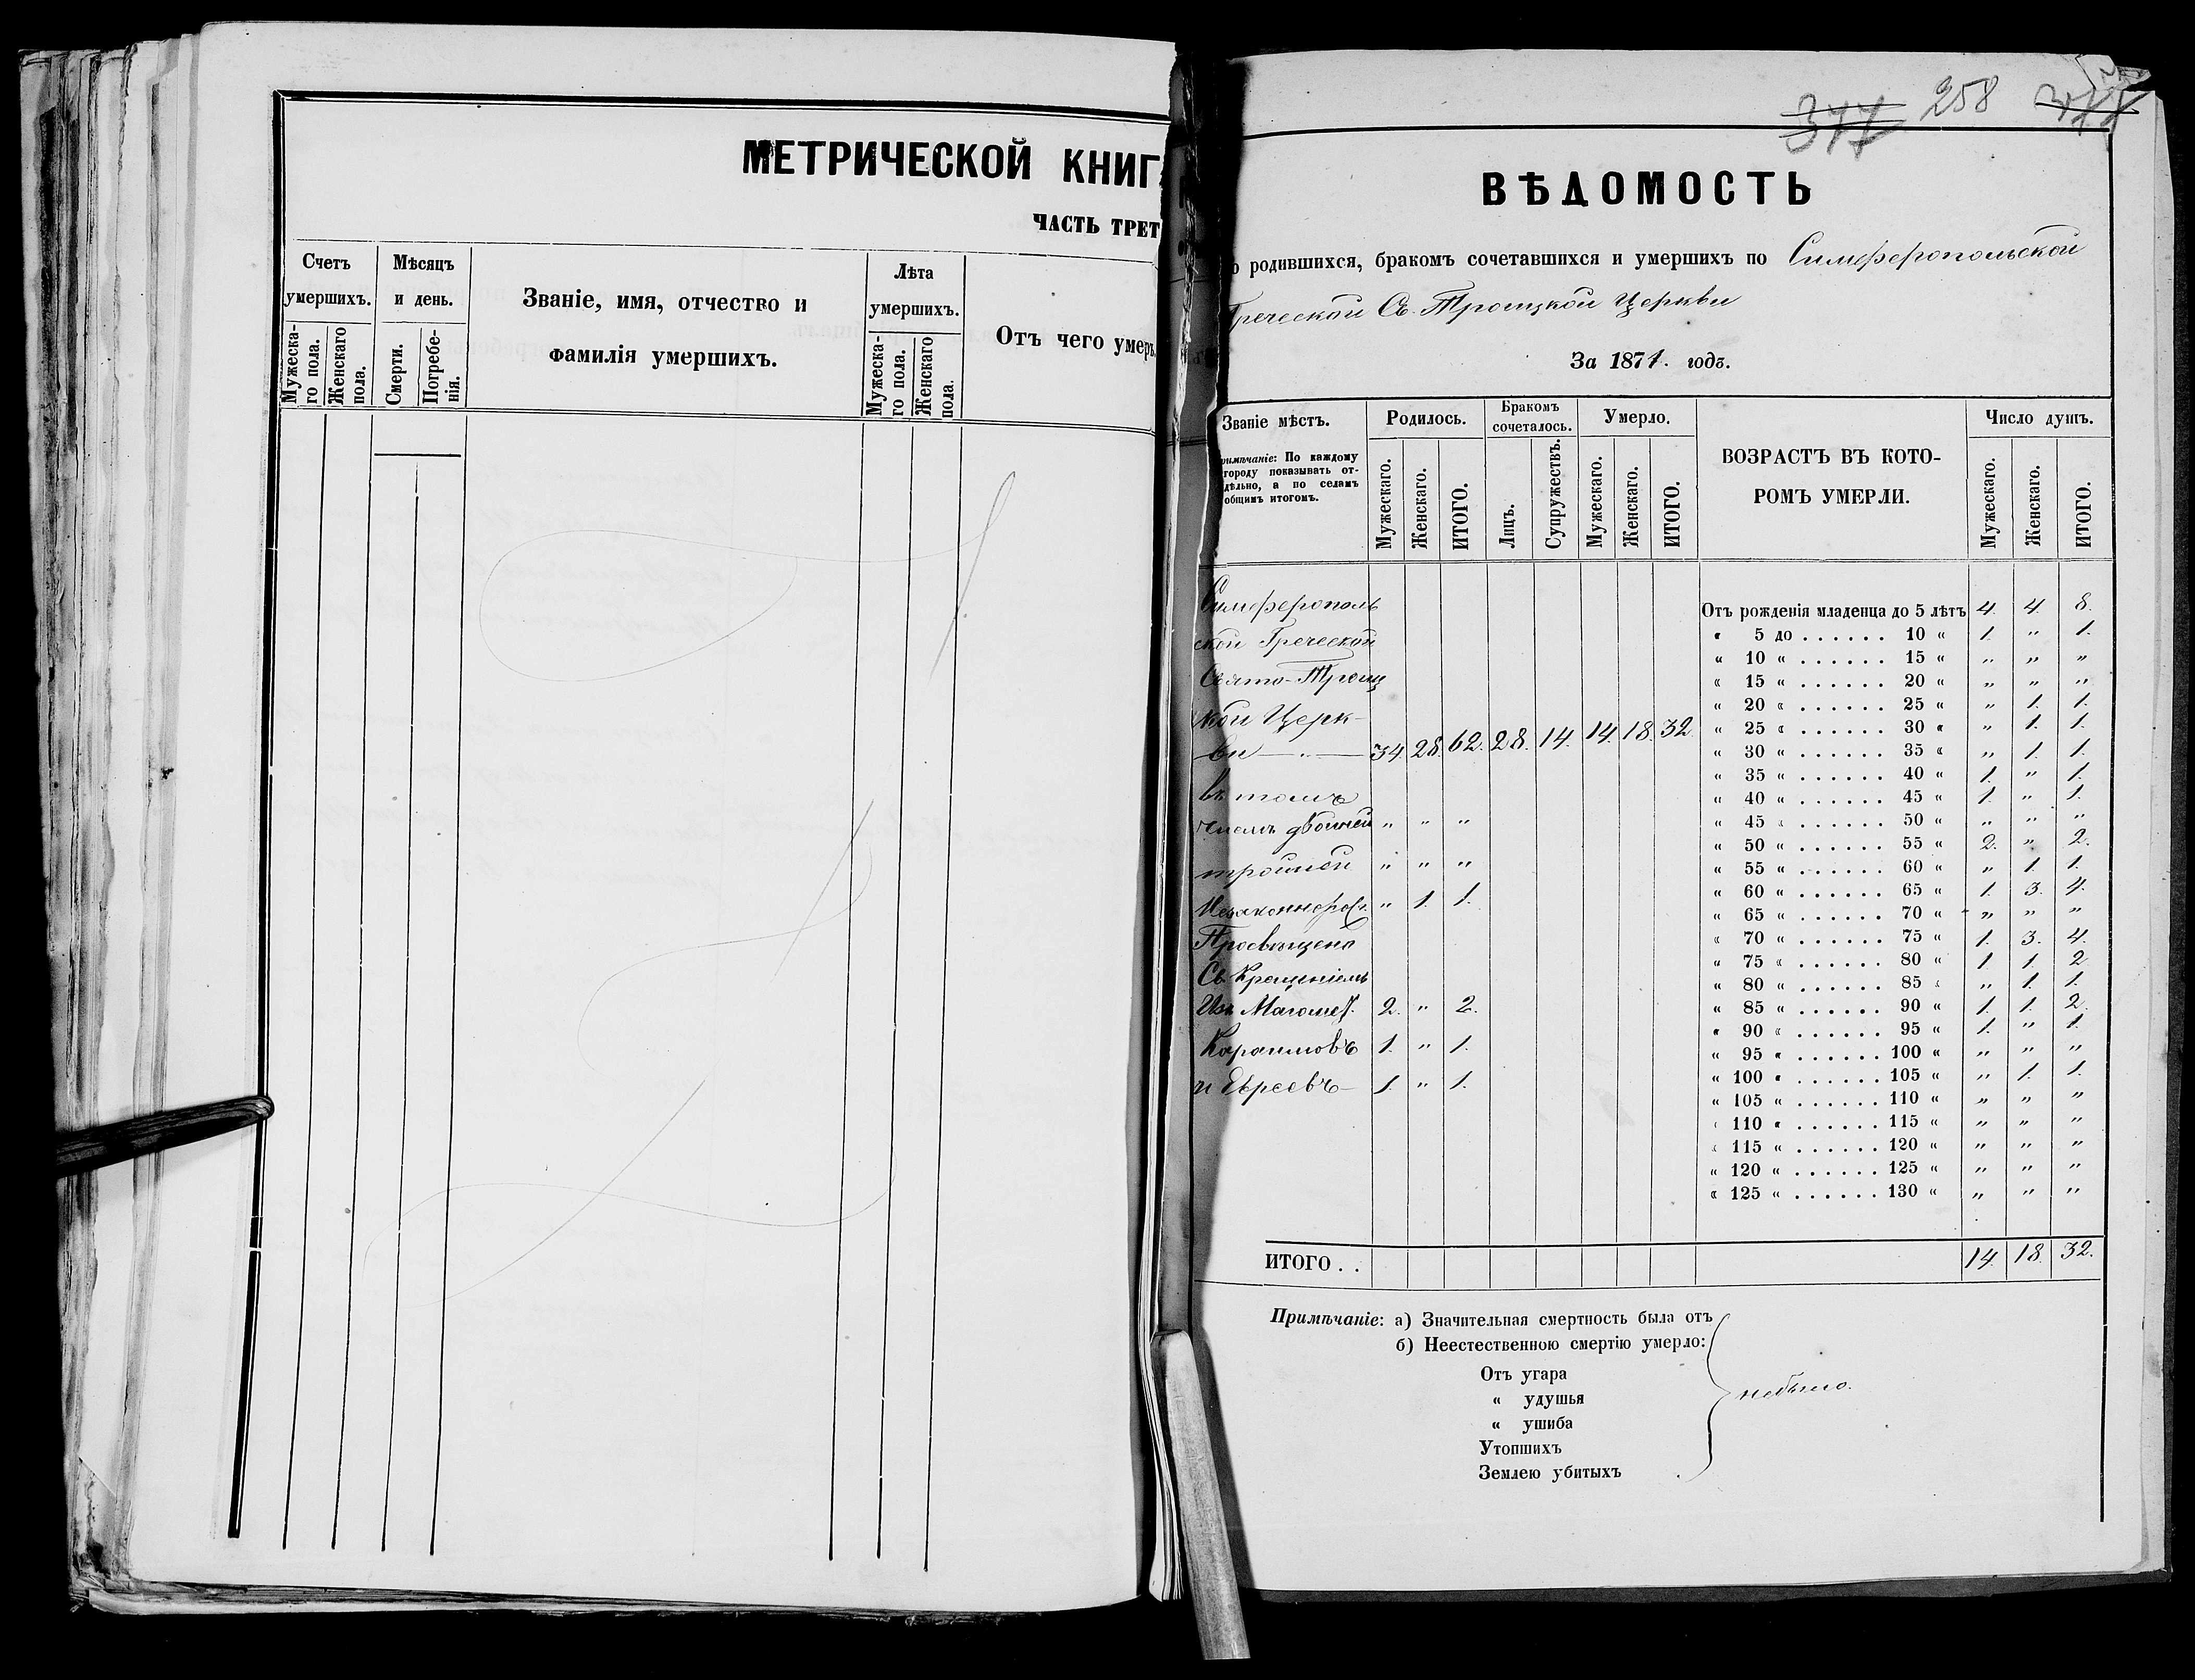 МЕТРИЧЕСКОЙ КНИГ
ЧАСТЬ ТРЕТ
Счетъ умершихъ.
Мужеска-го пола.
Женскаго пола.
Мѣсяцъ и день.
Смерти.
Погребе-нія.
Званіе, имя, отчество и
фамилія умершихъ.
Лѣта умершихъ.
Мужеска-го пола.
Женскаго пола.
Отъ чего умеръ
377 258 377
ВѢДОМОСТЬ
о родившихся, бракомъ сочетавшихся и умершихъ по Симферопольской
Греческой Св. Троицкой Церкви
За 1871. годъ.
Званіе мѣстъ.
Примѣчаніе: По каждому
городу показывать от-
дѣльно, а по селамъ
общимъ итогомъ.
Родилось.
Мужескаго. Женскаго. ИТОГО.
Бракомъ сочеталось.
Лицъ. Супружествъ.
Умерло.
Мужескаго. Женскаго. ИТОГО.
ВОЗРАСТЪ ВЪ КОТО-
РОМЪ УМЕРЛИ.
Число душъ.
Мужескаго. Женскаго. ИТОГО.
Симферополь
ской Греческой
Свято-Троиц
кой Церк-
ви — „ — 34. 28. 62. 28. 14. 14. 18. 32
въ томъ
числѣ двойней „ „ „
тройней „ „ „
Незаконнорож. „ 1. 1.
Просвѣщено
Св. Крещеніемъ
Изъ Магомет. 2. „ 2.
Караимовъ 1. „ 1.
и Евреевъ — 1. „ 1.
Отъ рожденія младенца до 5 лѣтъ 4. 4. 8.
« 5 до ...... 10 « 1. „ 1.
« 10 « ...... 15 « „ „ „
« 15 « ...... 20 « „ „ „
« 20 « ...... 25 « „ 1. 1.
« 25 « ...... 30 « „ 1. 1.
« 30 « ...... 35 « „ 1. 1.
« 35 « ...... 40 « 1. „ 1.
« 40 « ...... 45 « 1. „ 1.
« 45 « ...... 50 « „ „ „
« 50 « ...... 55 « 2. „ 2.
« 55 « ...... 60 « „ 1. 1.
« 60 « ...... 65 « 1. 3. 4.
« 65 « ...... 70 « „ „ „
« 70 « ...... 75 « 1. 3. 4.
« 75 « ...... 80 « 1. 1. 2
« 80 « ...... 85 « „ 1. 1.
« 85 « ...... 90 « 1. 1. 2.
« 90 « ...... 95 « 1. „ 1.
« 95 « ...... 100 « „ „ „
« 100 « ...... 105 « „ 1. 1.
« 105 « ...... 110 « „ „ „
« 110 « ...... 115 « „ „ „
« 115 « ...... 120 « „ „ „
« 120 « ...... 125 « „ „ „
« 125 « ...... 130 « „ „ „
ИТОГО . . 14. 18 32.
Примѣчаніе: а) Значительная смертность была отъ
б) Неестественною смертію умерло:
Отъ угара
« удушья
« ушиба
Утопшихъ
Землею убитыхъ
небыло.